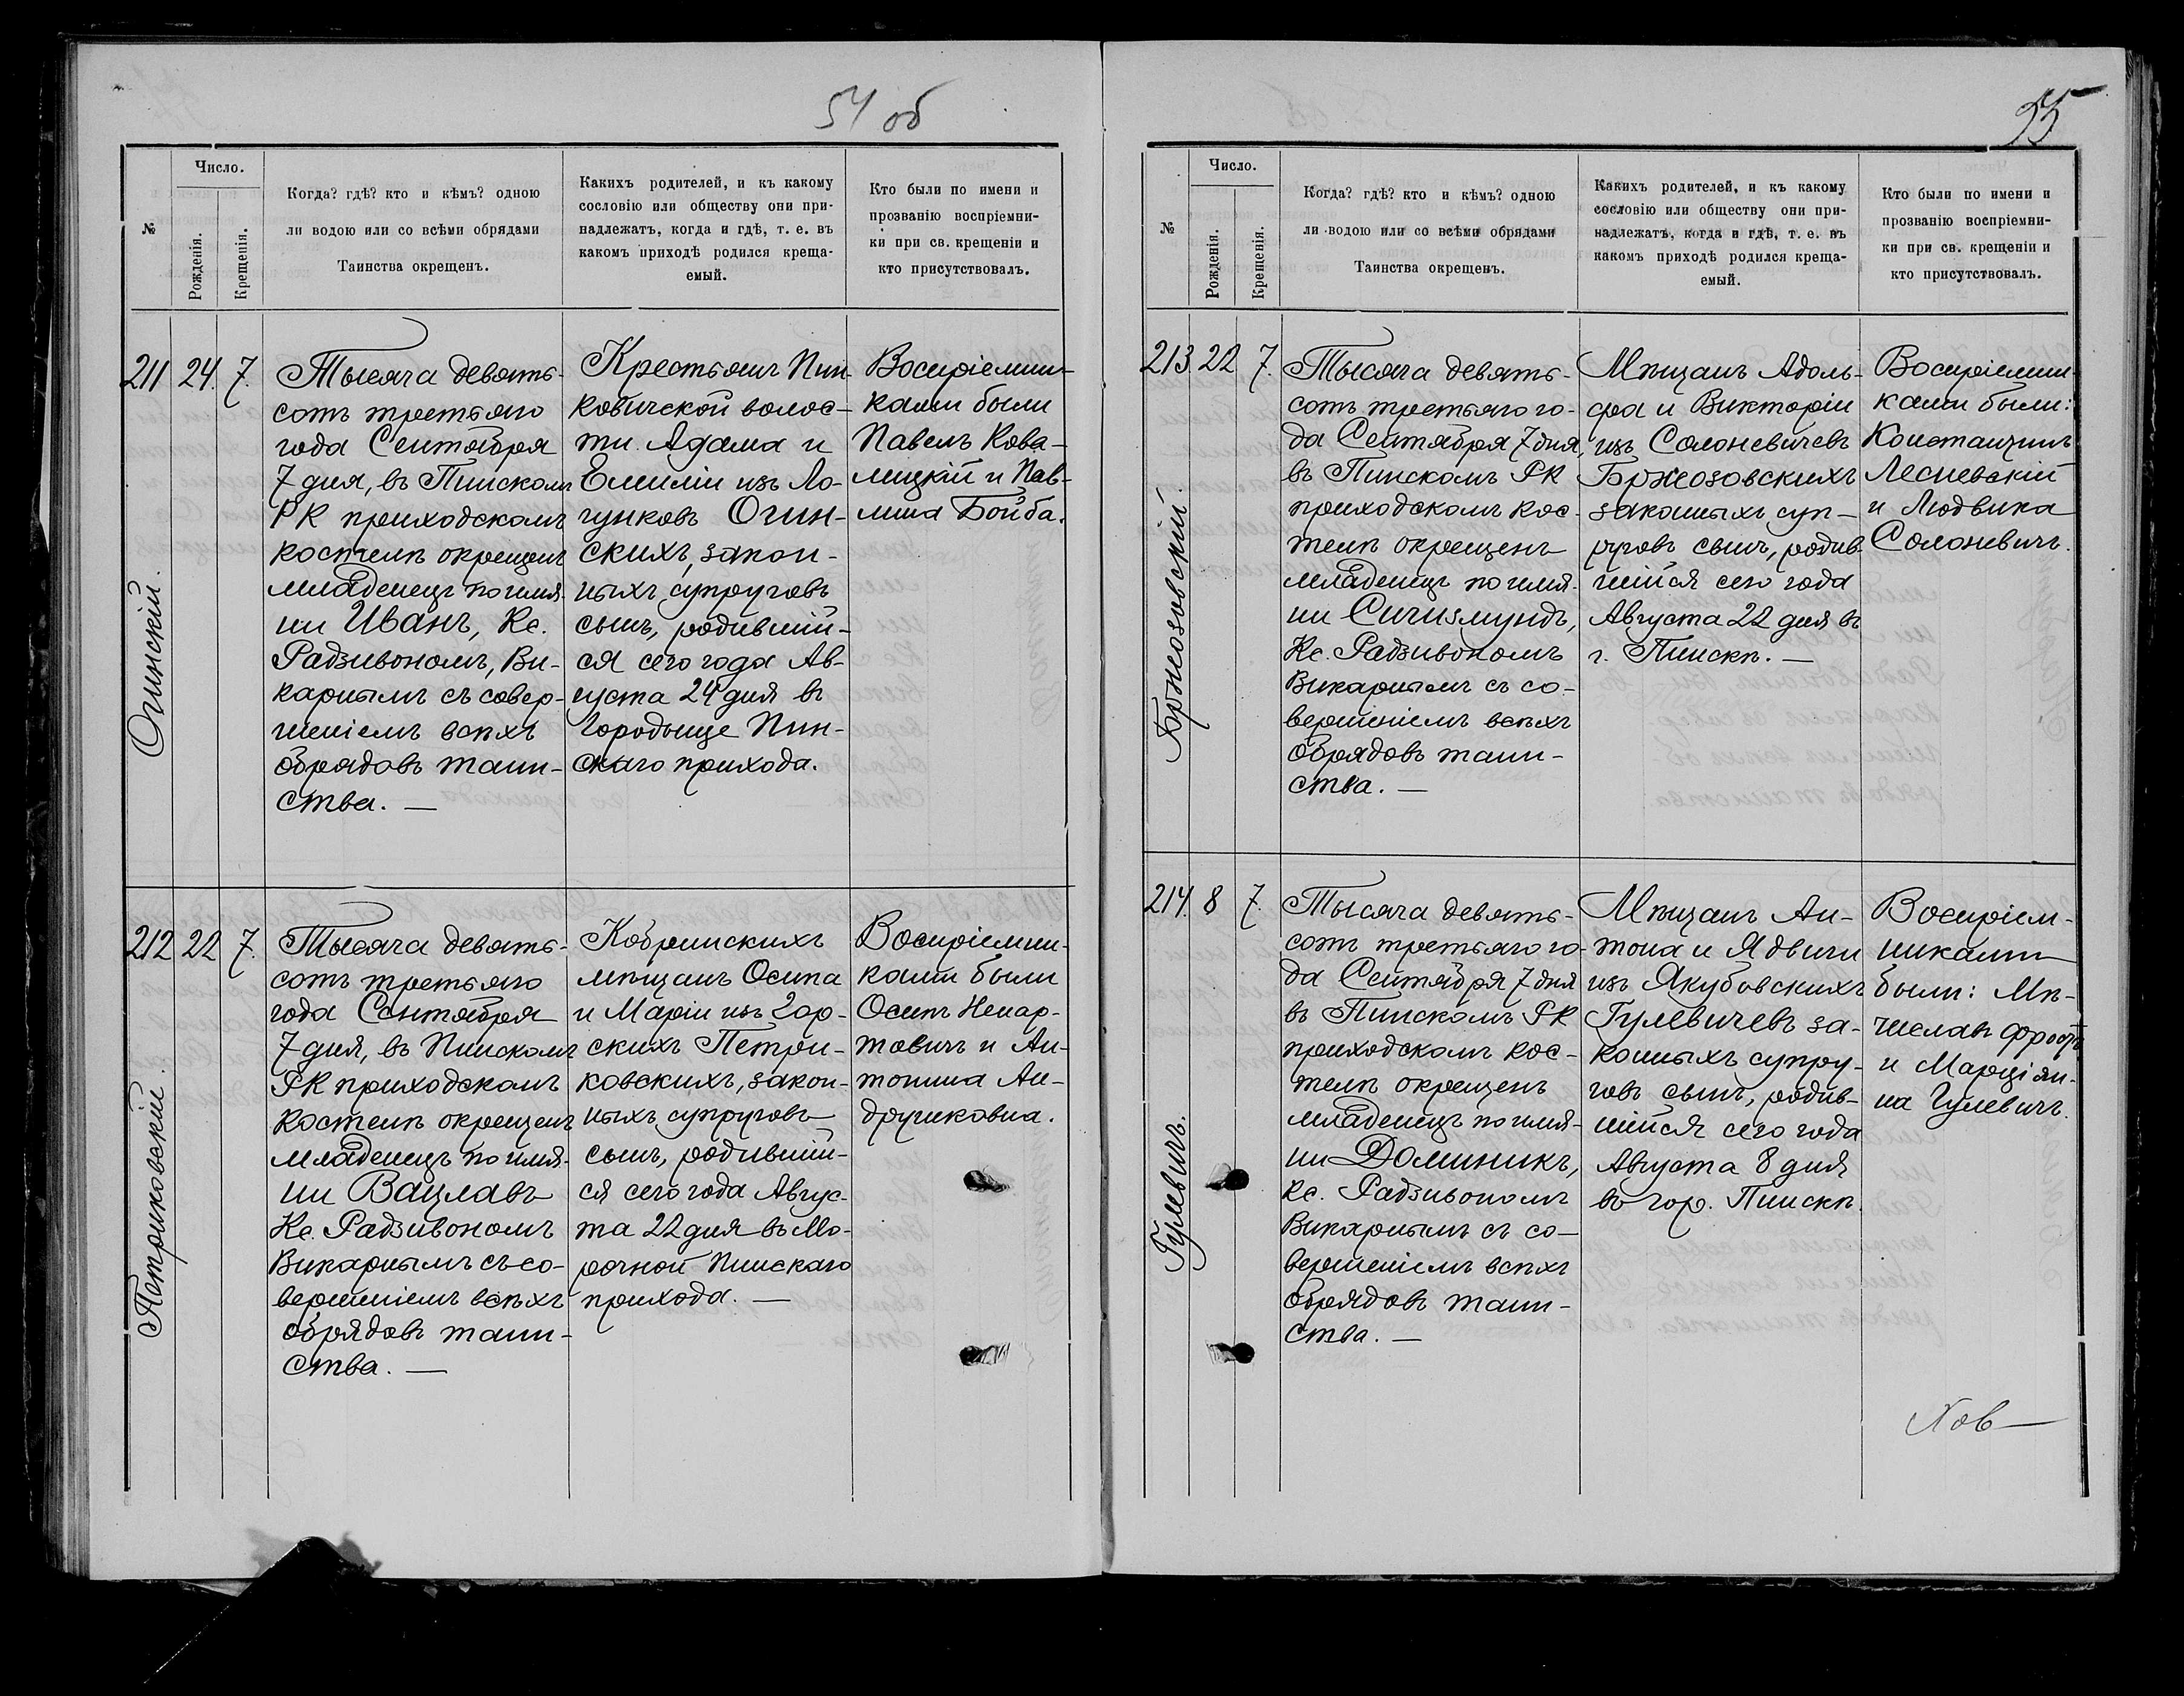 54 об
№
Число.
Рожденія.
Крещенія.
Когда? гдѣ? кто и кѣмъ? одною
ли водою или со всѣми обрядами
Таинства окрещенъ.
Какихъ родителей, и къ какому
сословію или обществу они при-
надлежатъ, когда и гдѣ, т. е. въ
какомъ приходѣ родился креща-
емый.
Кто были по имени и
прозванію воспріемни-
ки при св. крещеніи и
кто присутствовалъ.
211
24.
7.
Огинскій.
Тысяча девять-
сотъ третьяго
года Сентября
7 дня, въ Пинскомъ
РК приходскомъ
костелѣ окрещенъ
младенецъ по имя-
ни Иванъ, Кс.
Радзивономъ, Ви-
карнымъ съ совер-
шеніемъ всѣхъ
обрядовъ таин-
ства. —
Крестьянъ Пин-
ковичской волос-
ти Адама и
Емиліи изъ Ло-
гунковъ Огин-
скихъ, закон-
ныхъ супруговъ
сынъ, родившій-
ся сего года Ав-
густа 24 дня въ
Городыще Пин-
скаго прихода.
Воспріемни-
ками были
Павелъ Кова-
лицкій и Пав-
лина Бойба.
212
22
7.
Петриковскій.
Тысяча девять-
сотъ третьяго
года Сентября
7 дня, въ Пинскомъ
РК приходскомъ
костелѣ окрещенъ
младенецъ по имя-
ни Вацлавъ
Кс. Радзивономъ
Викарнымъ съ со-
вершеніемъ всѣхъ
обрядовъ таин-
ства. —
Кобринскихъ
мѣщанъ Осипа
и Маріи изъ Гор-
скихъ Петри-
ковскихъ, закон-
ныхъ супруговъ
сынъ, родившій-
ся сего года Авгус-
та 22 дня въ Мо-
рочной Пинскаго
прихода. —
Воспріемни-
ками были
Осипъ Ненар-
товичъ и Ан-
тонина Ан-
друшковна.
55
№
Число.
Рожденія.
Крещенія.
Когда? гдѣ? кто и кѣмъ? одною
ли водою или со всѣми обрядами
Таинства окрещенъ.
Какихъ родителей, и къ какому
сословію или обществу они при-
надлежатъ, когда и гдѣ, т. е. въ
какомъ приходѣ родился креща-
емый.
Кто были по имени и
прозванію воспріемни-
ки при св. крещеніи и
кто присутствовалъ.
213
22
7.
Бржозовскій.
Тысяча девять-
сотъ третьяго го-
да Сентября 7 дня,
въ Пинскомъ РК
приходскомъ кос-
телѣ окрещенъ
младенецъ по имя-
ни Сигизмундъ,
Кс. Радзивономъ
Викарнымъ съ со-
вершеніемъ всѣхъ
обрядовъ таин-
ства. —
Мѣщанъ Адоль-
фа и Викторіи
изъ Солоневичевъ
Бржозовскихъ
законныхъ суп-
руговъ сынъ, родив-
шійся сего года
Августа 22 дня въ
г. Пинскѣ. —
Воспріемни-
ками были:
Константинъ
Лесневскій
и Людвика
Солоневичъ.
214.
8
7.
Гулевичъ.
Тысяча девять-
сотъ третьяго го-
да Сентября 7 дня
въ Пинскомъ РК
приходскомъ кос-
телѣ окрещенъ
младенецъ по имя-
ни Доминикъ,
кс. Радзивономъ
Викарнымъ съ со-
вершеніемъ всѣхъ
обрядовъ таин-
ства. —
Мѣщанъ Ан-
тона и Ядвиги
изъ Якубовскихъ
Гулевичевъ за-
конныхъ супру-
говъ сынъ, родив-
шійся сего года
Августа 8 дня
въ гор. Пинскѣ.
Воспріем-
никами
были: Мѣ-
числавъ
и Марціян-
на Гулевичъ.